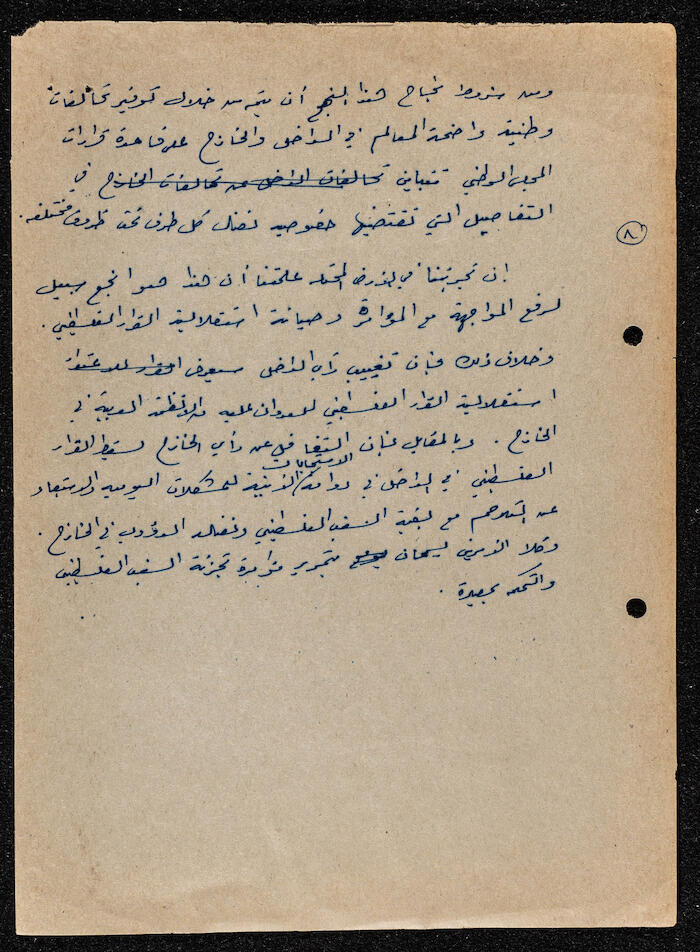 ومن شروط نجاح هذا النهج أن يتم من خلال توفير تحالفات
وطنية واضحة المعالم في الداخل والخارج على قاعدة قرارات
المجلس الوطني تتباين تحالفات الداخل عن تحالفات الخارج في
التفاصيل التي تقتضيها خصوصية نضال كل طرف تحت ظروف مختلفة.
٨
إن تجربتنا في الأرض المحتلة علمتنا أن هذا هو أنجع سبيل
لرفع المواجهة مع المؤامرة وصيانة استقلالية القرار الفلسطيني.
وخلاف ذلك فإن تغييب رأي الداخل سيعرض القرار
استقلالية القرار الفلسطيني للعدوان عليه من الأنظمة العربية في
الخارج. وبالمقابل فإن التغافل عن رأي الخارج سيسقط القرار
الفلسطيني في الداخل في دوامة الاستجابات الذيلية للمشكلات اليومية والابتعاد
عن التلاحم مع بقية الشعب الفلسطيني ونضاله الدؤوب في الخارج.
وكلا الأمرين ليساهمان بتمرير مؤامرة تجزئة الشعب الفلسطيني
والتحكم بمصيره.